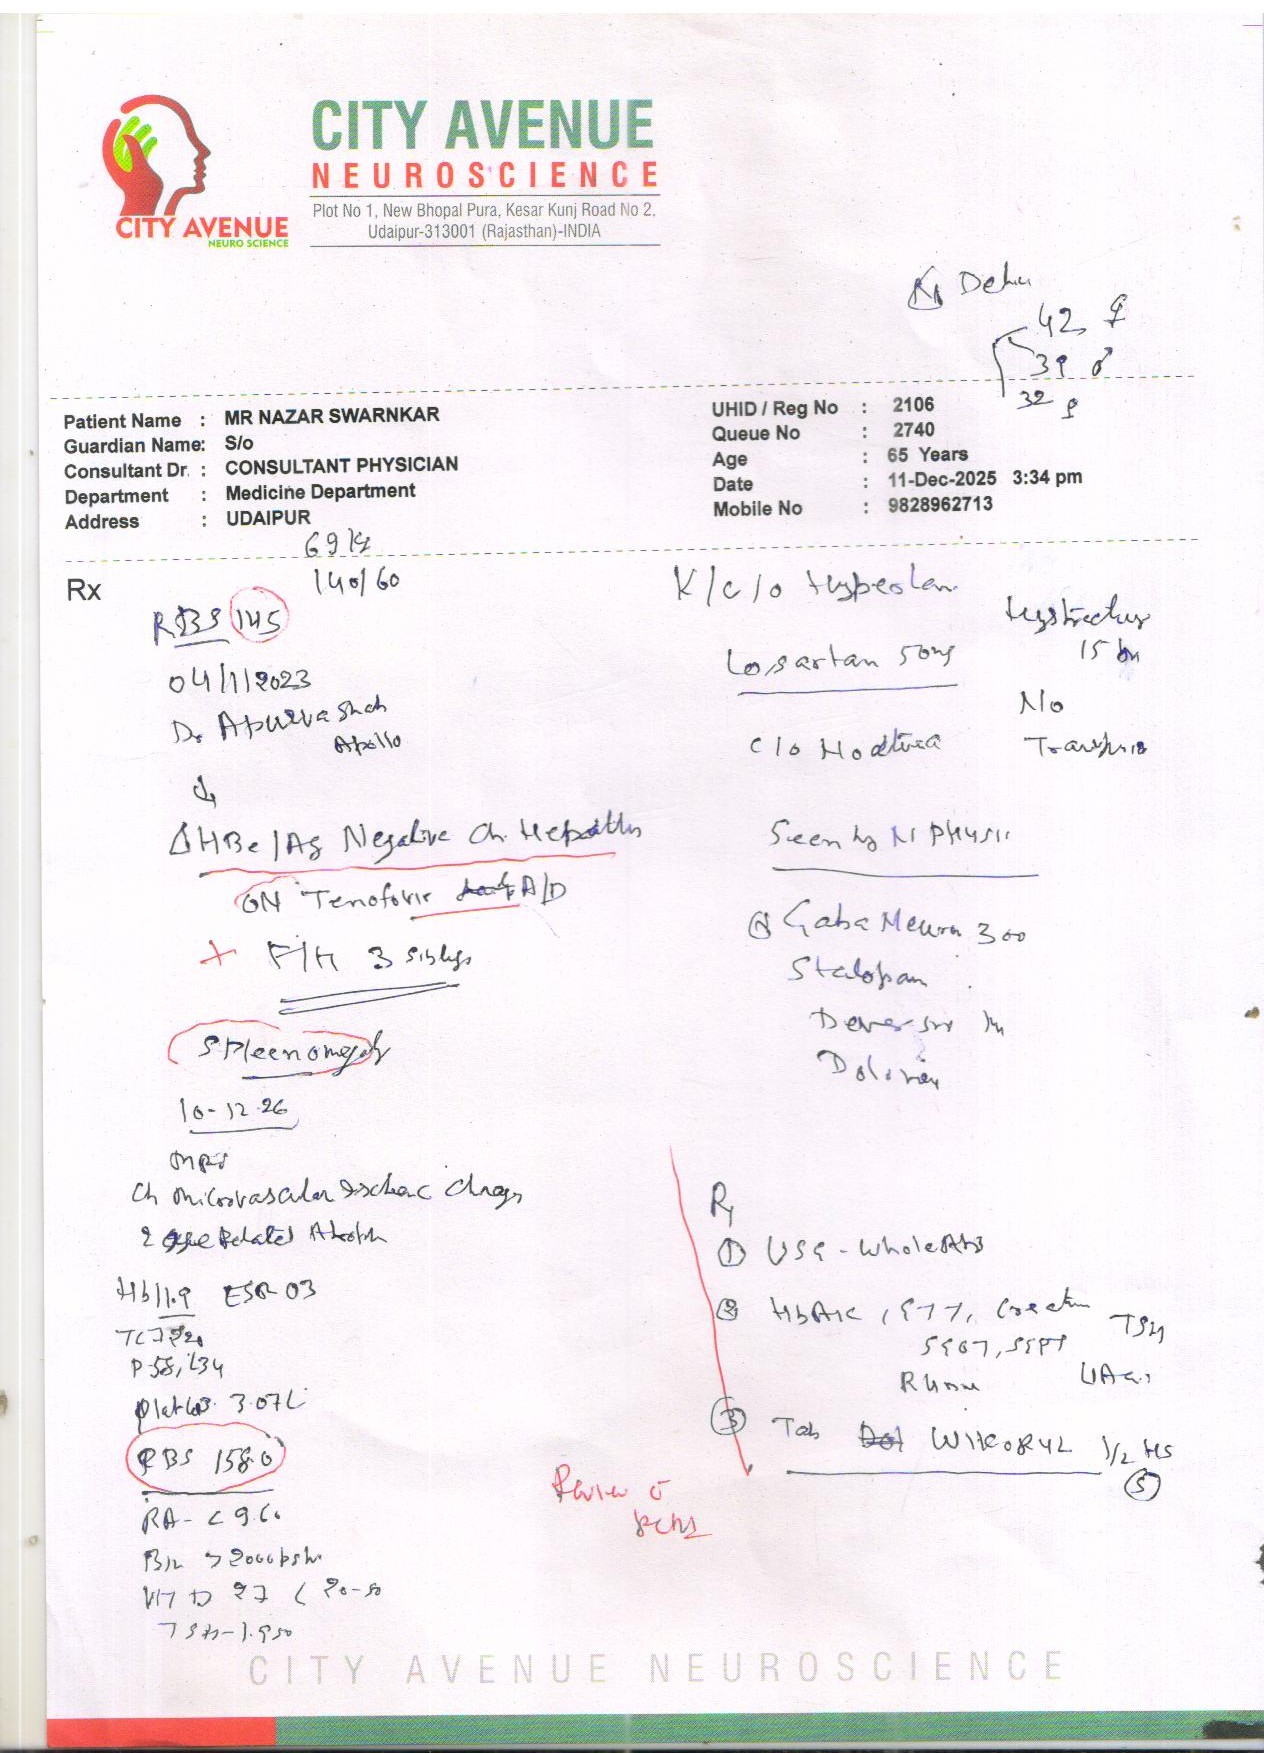 CITY AVENUE
NEURO SCIENCE
CITY AVENUE
NEUROSCIENCE
Plot No 1, New Bhopal Pura, Kesar Kunj Road No 2,
Udaipur-313001 (Rajasthan)-INDIA
42 ♀
39 ♂
32 ♀
Patient Name : MR NAZAR SWARNKAR
Guardian Name: S/o
Consultant Dr. : CONSULTANT PHYSICIAN
Department : Medicine Department
Address : UDAIPUR
UHID / Reg No : 2106
Queue No : 2740
Age : 65 Years
Date : 11-Dec-2025 3:34 pm
Mobile No : 9828962713
69 kg
140/60
Rx
RBS 145
04/1/2023
Dr Apurva Shah
Apollo
Δ HBe/Ag Negative Ch. Hepatitis
ON Tenofovir A/D
+ F/H 3 siblgs
Spleenomegaly
10-12-26
MRI
Ch microvascular Ischaemic changes
Age Related Atroph
Hb 11.9 ESR-03
P-58, L34
3.07L
RBS 158.0
RA- <
B12 > 2000
VIT D 27 (20-50
TSH-1.950
K/c/o Hyperten
Losartan 50mg
c/o
No
Seen by N Physi
GabaNeuron 300
Stalopam
Rx
① USG - Whole Abd
② HbA1c, Creatin TSH
SGOT, SGPT
③ Tab 1/2 HS
⑤
Review c
CITY AVENUE NEUROSCIENCE